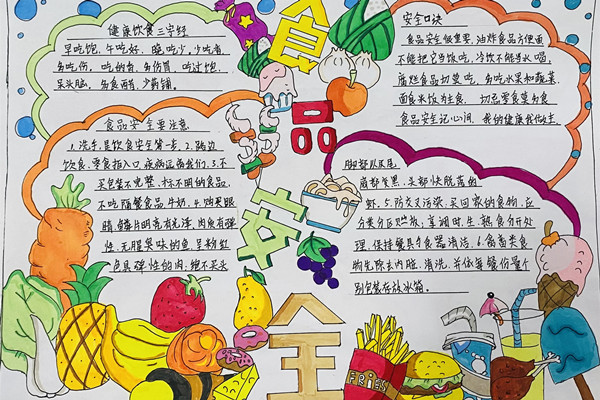 健康饮食三字经
早吃饱，午吃好，晚吃少，少吃香，
多吃伤，吃的多，多伤胃，吃过饱，
呆头脑，多食醋，少药铺。
食品安全要注意
1.洗手是饮食安全第一步，2.路边
饮食，零食病入口，疾病远离我们，3.不
买包装不完整、标不明的食品，
不吃隔餐食品牛奶，4.购买眼
睛、鳞片明亮有光泽，肉质有弹
性、无腥臭味的鱼，呈粉红
色具弹性的肉，绝不买头
食品安全
安全口诀
食品安全很重要，油炸食品方便面
不能把它当饭吃，冷饮不能当水喝，
腐烂食品切莫吃，多吃水果和蔬菜，
面食米饭为主食，切忌零食莫多食
食品安全记心间，我的健康我作主
脚部以及尾
腹部发黑、头部快脱落的
虾，5.防交叉污染，买回家的食物，应
分类分区贮放，烹调时，生、熟食分开处
理，保持餐具食器清洁，6.鱼畜类食
物先除去内脏、清洗，并依每餐份量个
别包装存放冰箱。
FRIES